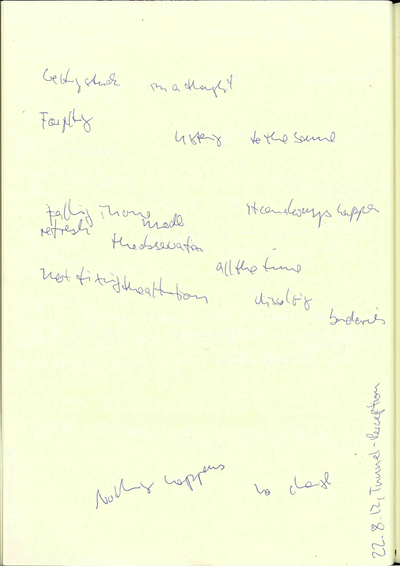 Getting stuck in a thought
Forgetting
listening to the same
Falling in one mode it can always happen
refresh the observation
all the time
not fixing the attention dissolving
boundaries
Nothing happens to change
22.8.12, Tunnel-Perception